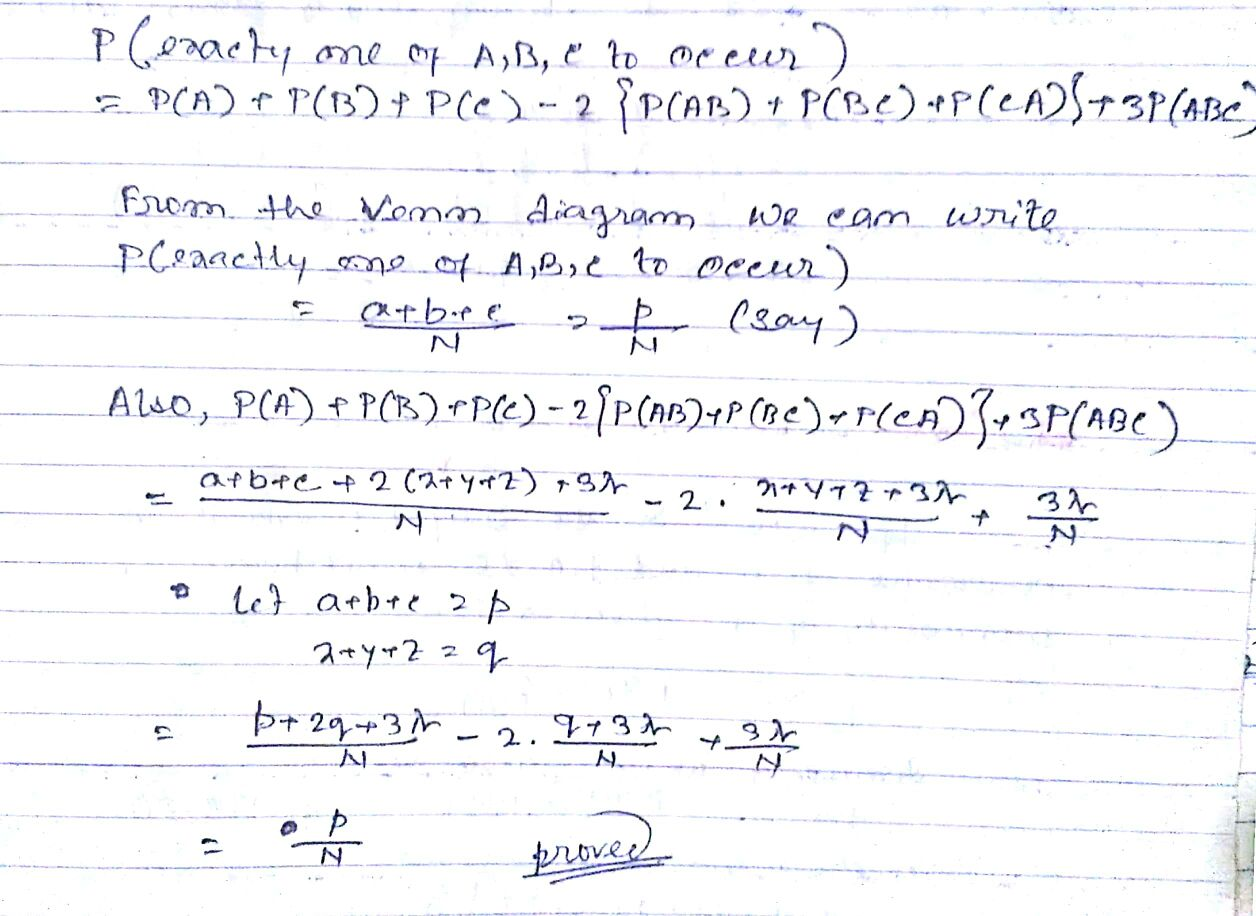 P(exacty one of A, B, C to occur)
= P(A) + P(B) + P(C) - 2 {P(AB) + P(BC) + P(CA)} + 3P(ABC)
From the Venn diagram we can write
P(exactly one of A, B, C to occur)
= (a+b+c)/N = p/N (say)
Also, P(A) + P(B) + P(C) - 2{P(AB) + P(BC) + P(CA)} + 3P(ABC)
= (a+b+c + 2(x+y+z) + 3r)/N - 2 . (x+y+z+3r)/N + 3r/N
Let a+b+c = p
x+y+z = q
= (p+2q+3r)/N - 2. (q+3r)/N + 3r/N
= p/N proved